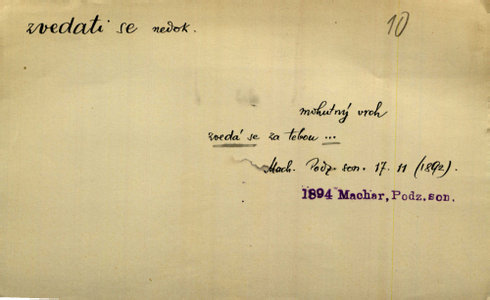 zvedati se nedok.
10
mohutný vrch
zvedá se za tebou ...
Mach. Podz. son. 17. 11 (1892).
1894 Machar, Podz. son.